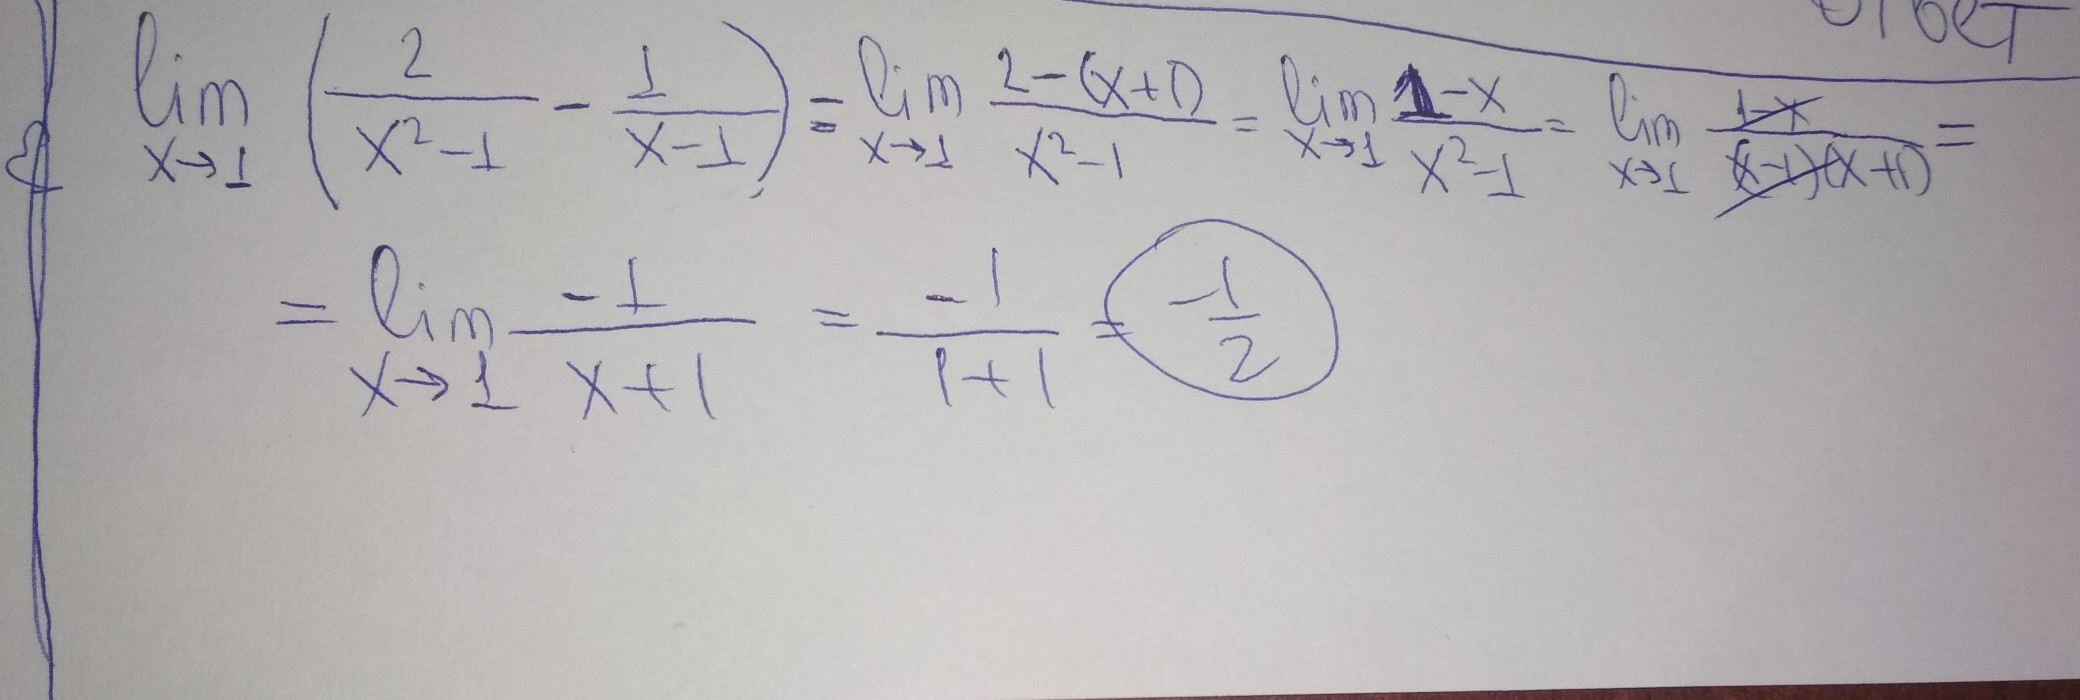 ответ
lim x→1 (2/(x²-1) - 1/(x-1)) = lim x→1 (2-(x+1))/(x²-1) = lim x→1 (1-x)/(x²-1) = lim x→1 (1-x)/((x-1)(x+1)) =
= lim x→1 -1/(x+1) = -1/(1+1) = -1/2